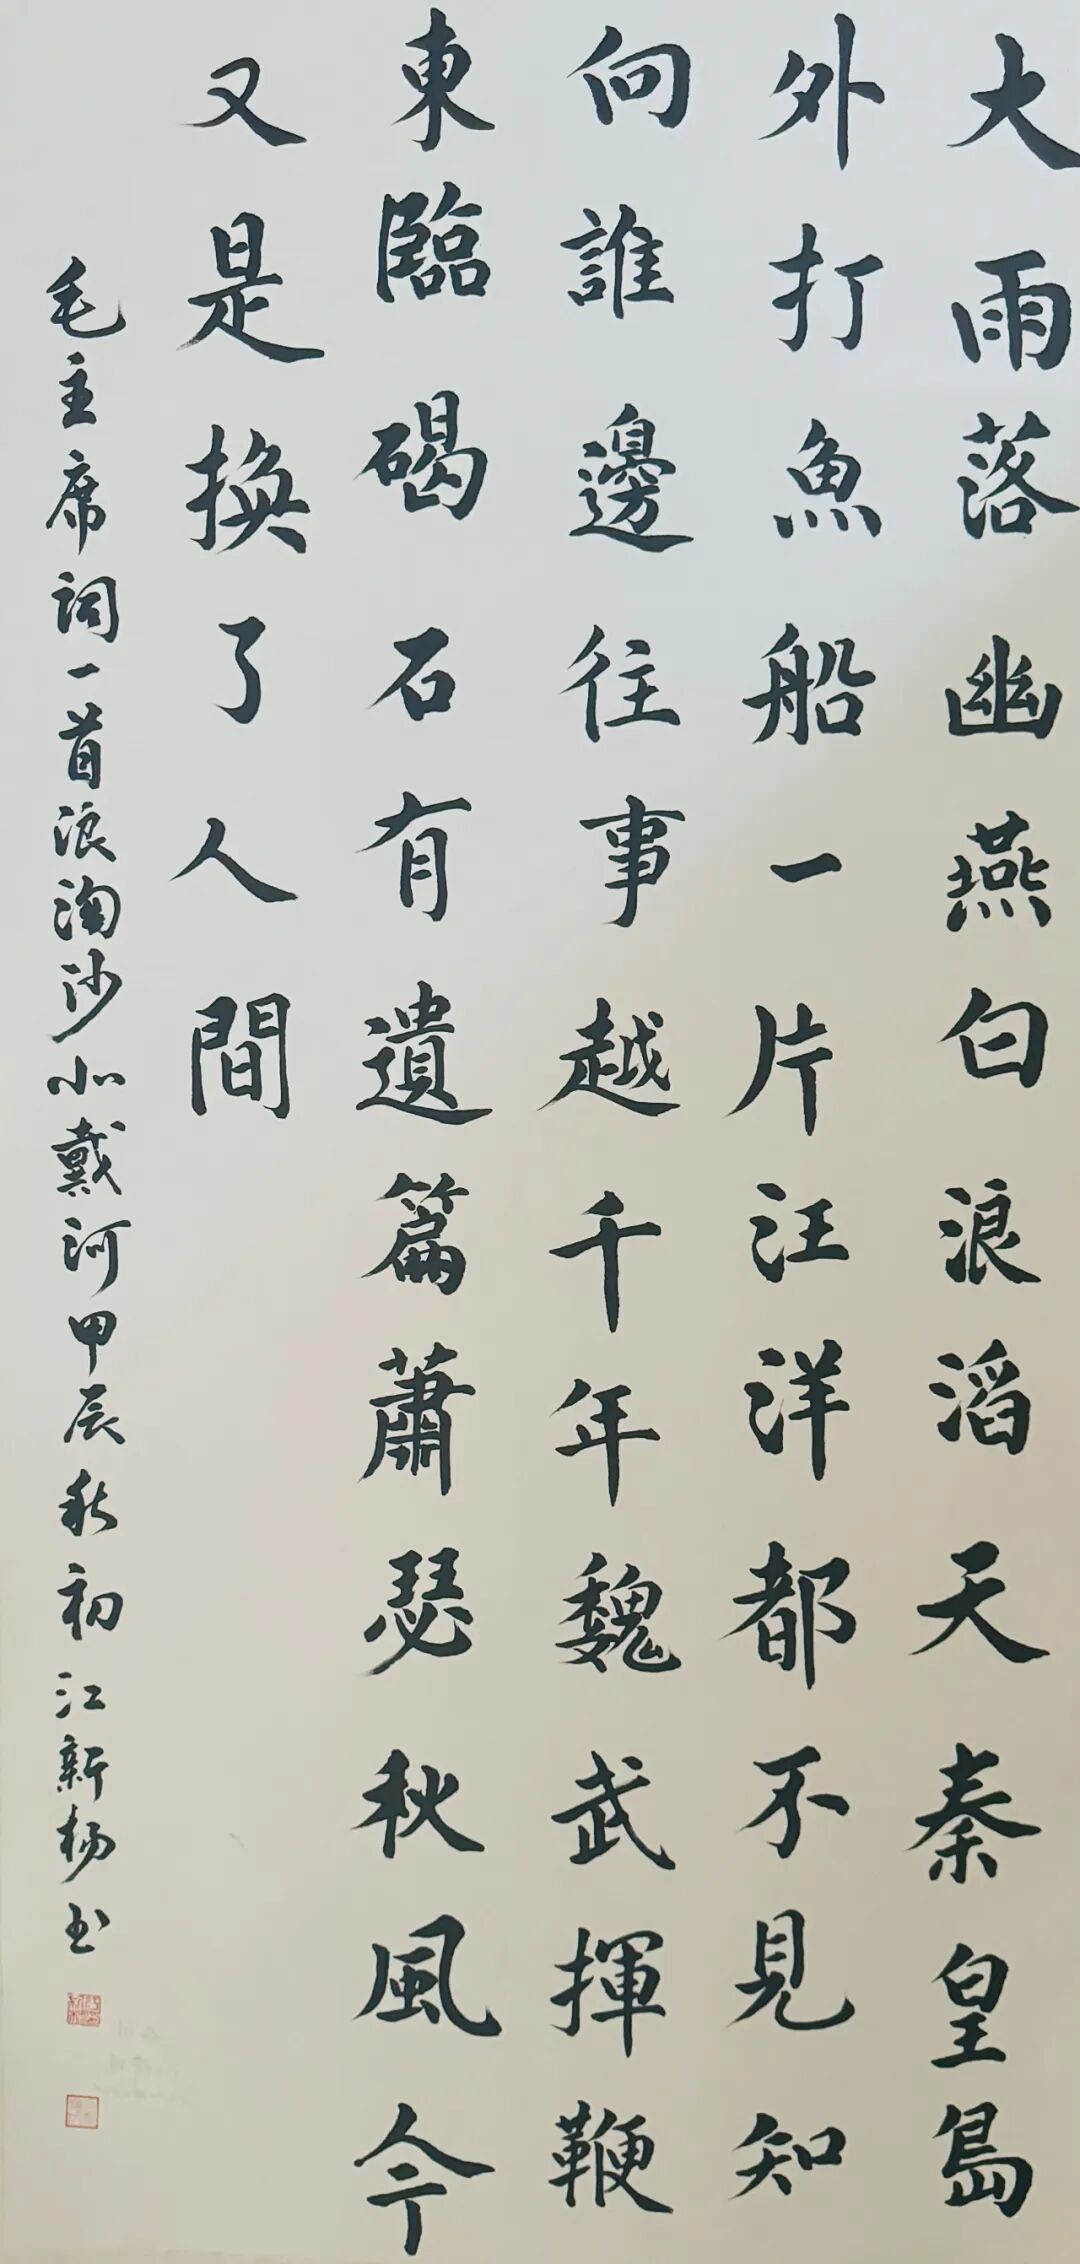 大雨落幽燕白浪滔天秦皇島
外打魚船一片汪洋都不見知
向誰邊往事越千年魏武揮鞭
東臨碣石有遺篇蕭瑟秋風今
又是換了人間
毛主席词一首浪淘沙北戴河甲辰秋初江新杨书